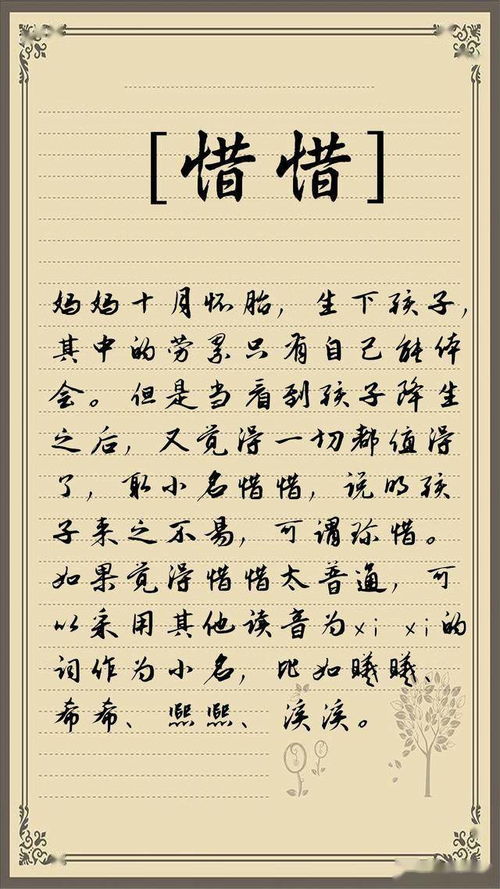 [惜惜]
妈妈十月怀胎，生下孩子，
其中的劳累只有自己能体
会。但是当看到孩子降生
之后，又觉得一切都值得
了，取小名惜惜，说明孩
子来之不易，可谓珍惜。
如果觉得惜惜太普通，可
以采用其他读音为xi xi的
词作为小名，比如曦曦、
希希、熙熙、溪溪。